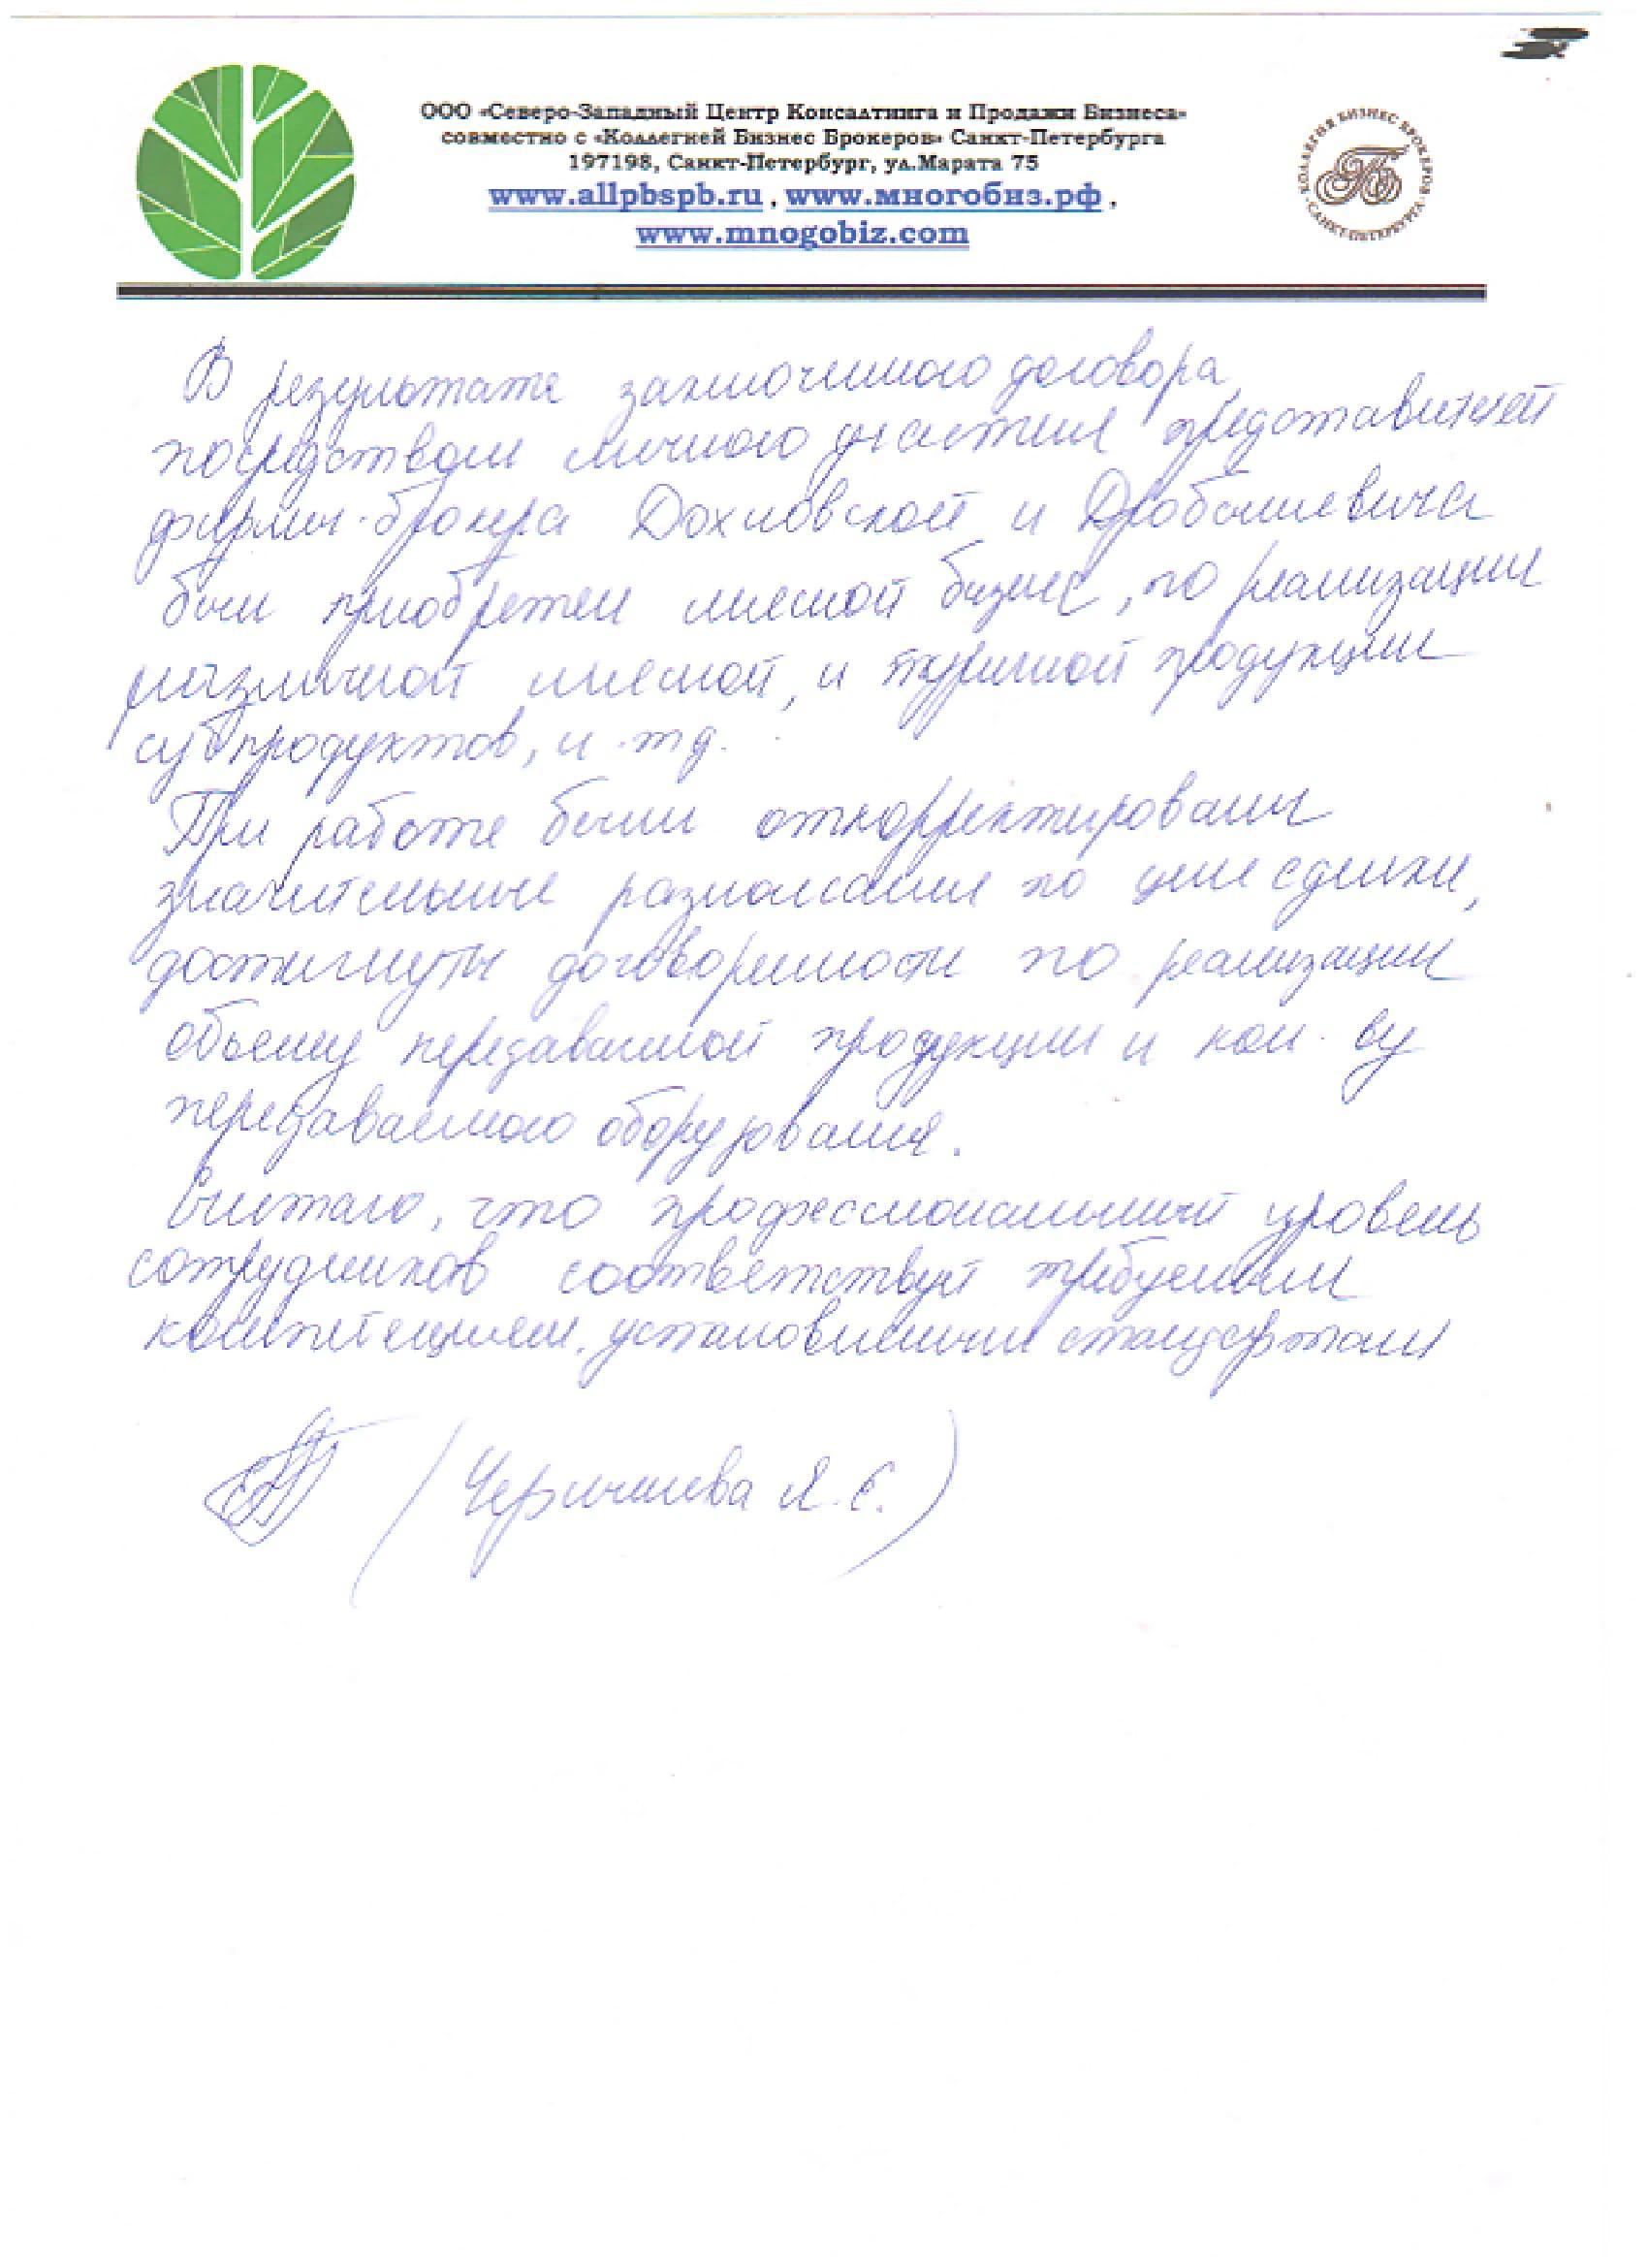 ООО «Северо-Западный Центр Консалтинга и Продажи Бизнеса»
совместно с «Коллегией Бизнес Брокеров» Санкт-Петербурга
197198, Санкт-Петербург, ул.Марата 75
www.allpbspb.ru , www.многобиз.рф ,
www.mnogobiz.com
КОЛЛЕГИЯ БИЗНЕС-БРОКЕРОВ
САНКТ-ПЕТЕРБУРГА
В результате заключенного договора,
посредством личного участия представителей
фирмы-брокера и
был приобретен мясной бизнес, по реализации
различной мясной, и куриной продукции
субпродуктов, и тд.
При работе были откорректированы
значительные разногласия по цене сделки,
достигнуты договоренности по реализации
объему передаваемой продукции и кол-ву
передаваемого оборудования.
Считаю, что профессиональный уровень
сотрудников соответствует требуемым
компетенциям, установленным стандартам